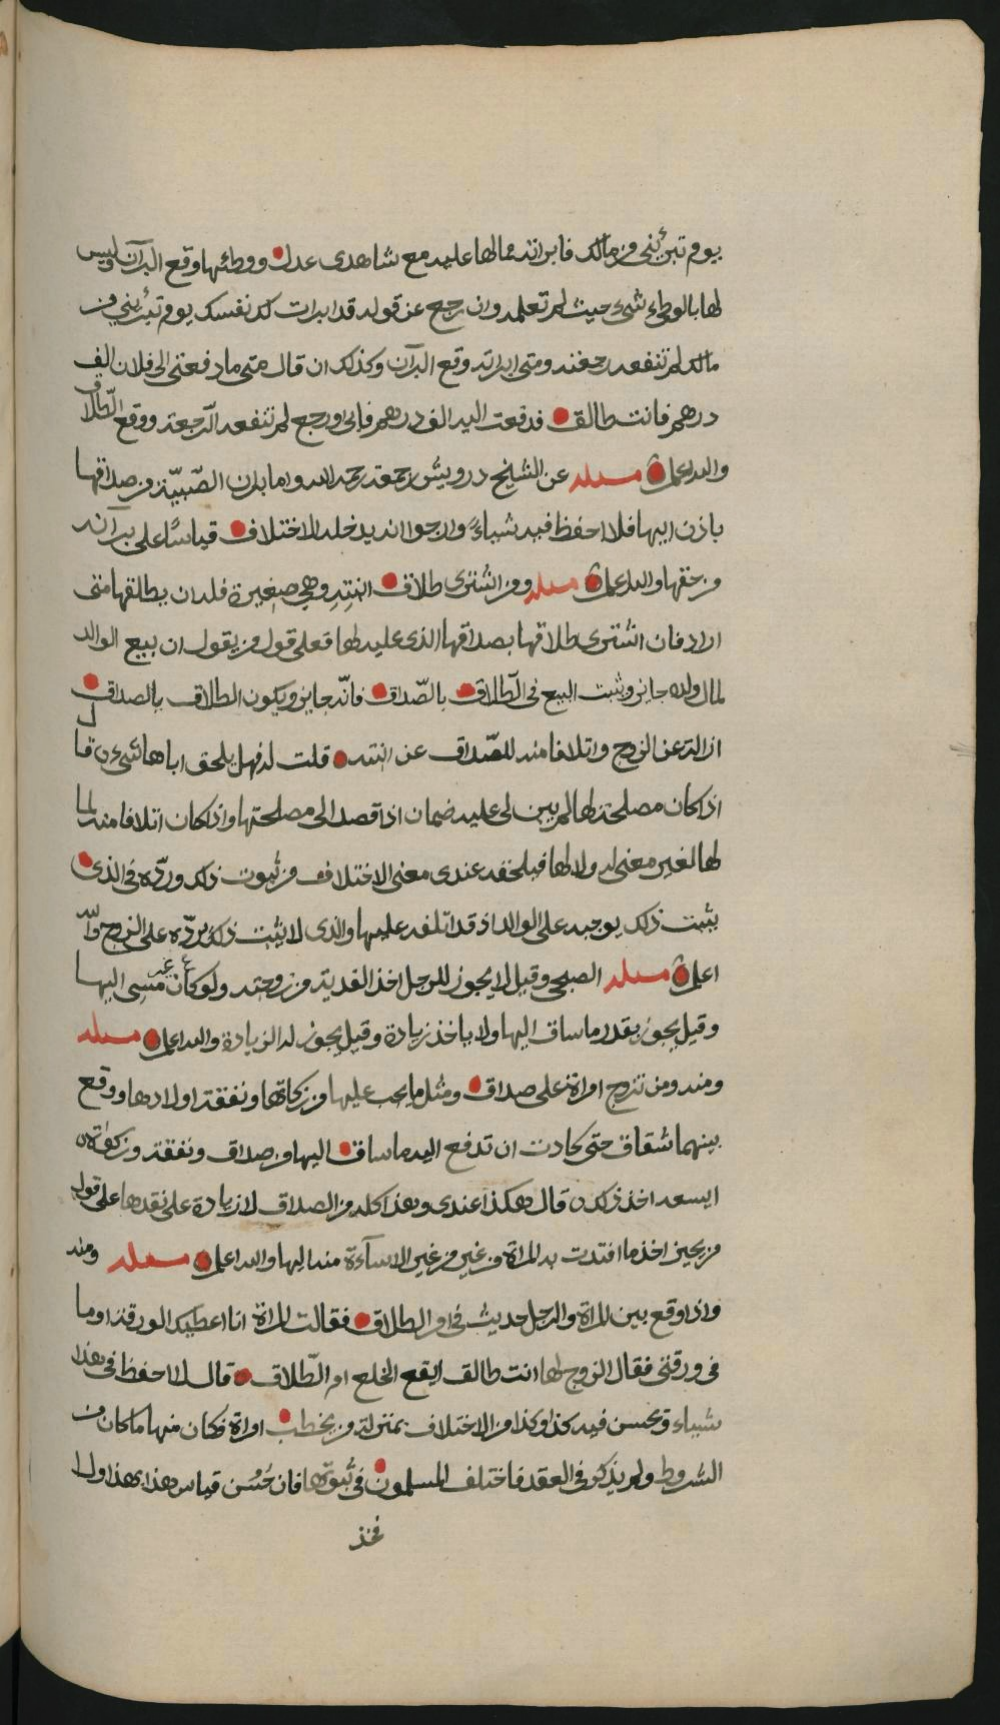 يوم تبرئيني من مالك فابراته مالها عليه مع شاهدي عدل ووطئها وقع البرآن وليس
لها بالوطء شيء حيث لم تعلمه وان رجع عن قوله قد ابرات لك نفسك يوم تبرئيني من
مالك لم تنفعه رجعته ومتى ابراته وقع البرآن وكذلك ان قال متى ما دفعتي الى فلان الف
درهم فانت طالق فدفعت اليه الف درهم فابى ورجع لم تنفعه الرّجعة ووقع الطّلاق
والله اعلم مسئله عن الشيخ درويش بن جمعة رحمه الله واما برآن الصّبيّة من صداقها
باذن ابيها فلا احفظ فيه شياءً وارجوا انه يدخله الاختلاف قياسًا على برآنه
من حقها والله اعلم مسئله ومن اشترى طلاق ابنته وهي صغيرة فله ان يطلقها متى
اراد فان اشترى طلاقها بصداقها الذى عليه لها فعلى قول من يقول ان بيع الوالد
لمال ولده جايز وثبت البيع في الطّلاق بالصّداق فانّه جايز ويكون الطلاق بالصداق
ازالة عن الزوج واتلافا منه للصّداق عن ابنته قلت له فهل يلحق اباها شيء قال
اذا كان مصلحة لها لم يبن لي عليه ضمان اذا قصد الى مصلحتها واذا كان اتلافا منه لما
لها لغير معنى له ولا لها فيلحقه عندي معنى الاختلاف من ثبوت ذلك وردّه في الذى
يثبت ذلك يوجبه على الوالد اذ قد اتلفه عليها والذى لا يثبت ذلك يردّه على الزوج والله
اعلم مسئله الصبحي وقيل لا يجوز للرجل اخذ الفدية من زوجته ولو كان غير مسي اليها
وقيل يجوز بقدر ما ساق اليها ولا ياخذ زيادة وقيل يجوز له الزيادة والله اعلم مسئله
ومنه ومن تزوج امراة على صداق ومثل ما يجب عليها من زكاتها ونفقة اولادها ووقع
بينهما شقاق حتى كادت ان تدفع اليه ما ساق اليها من صداق ونفقة وزكوة
ايسعه اخذ ذلك قال هكذا عندي وهذا كله من الصداق لا زيادة على نقدها على قول
من يجيز اخذ ما افتدت به المراة من غير من غير الاسآءة منه اليها والله اعلم مسئله ومنه
واذا وقع بين المراة والرجل حديث في امر الطلاق فقالت المراة انا اعطيك الورقة وما
في ورقتي فقال الزوج لها انت طالق ايقع الخلع ام الطّلاق قال لا احفظ في هذا
شياء ويحسن فيه كذا وكذا من الاختلاف بمنزلة من يخطب امراة فكان منها ما كان من
الشروط ولم يذكر في العقد فاختلف المسلمون في ثبوتها فان حُسُن قياس هذا بهذا ولا
فخذ